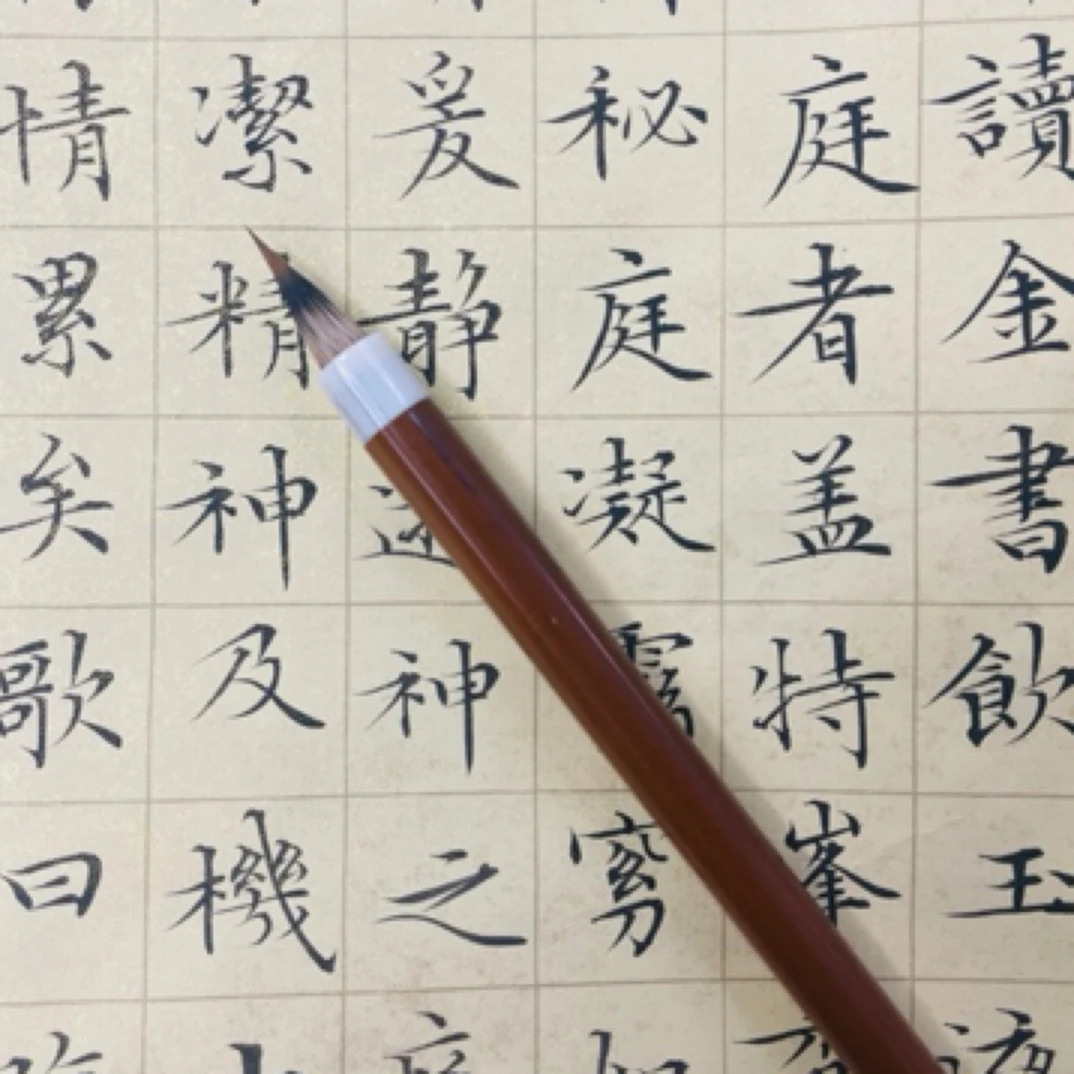 讀金書飲玉液
庭者盖特峯
秘庭凝
爰静神之
潔精神及機
情累矣歌曰